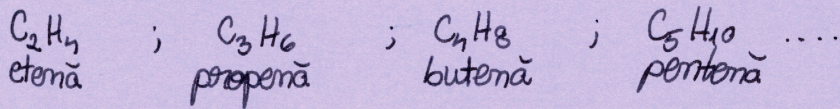 C₂H₄ ; C₃H₆ ; C₄H₈ ; C₅H₁₀ ....
etenă propenă butenă pentenă